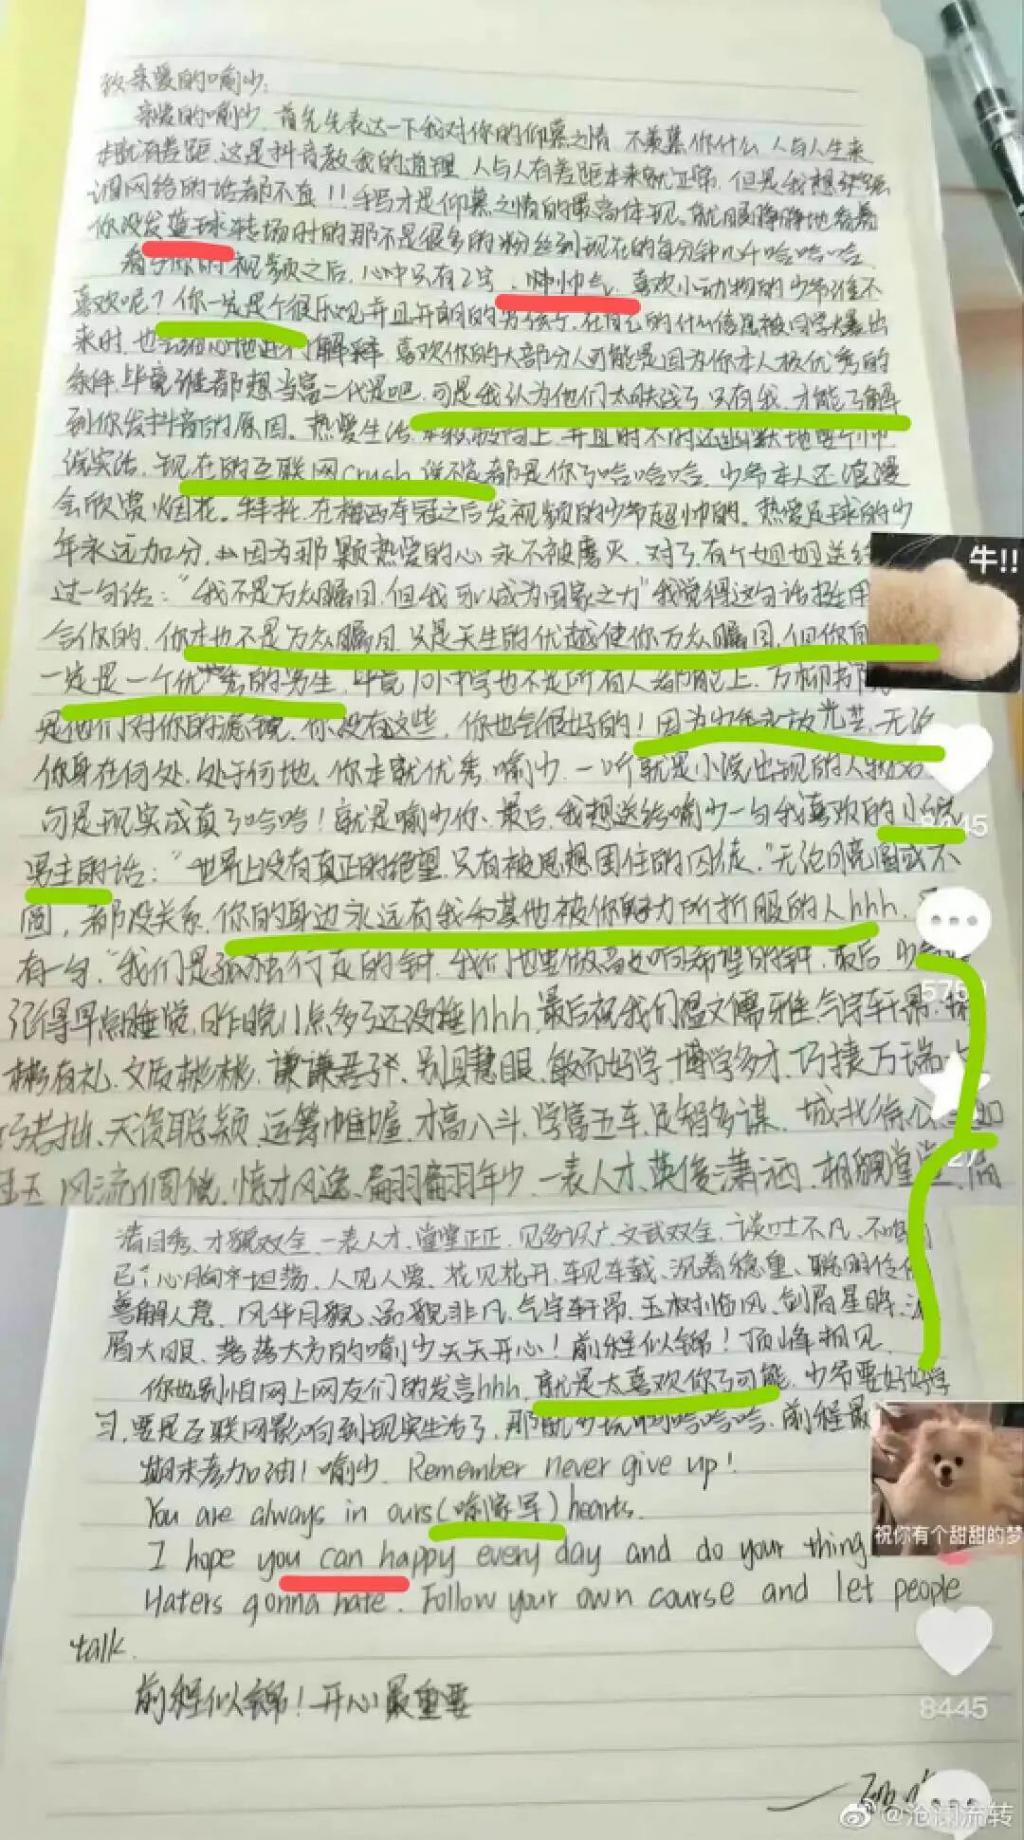 致亲爱的喻少:
亲爱的喻少,首先先表达一下我对你的仰慕之情,不羡慕你什么,人与人生来
本就有差距,这是抖音教我的道理,人与人有差距本来就正常,但是我想
网络的话都不直!!手写才是仰慕之情的最高体现。就眼睁睁地看着
你没发篮球转场时的那不是很多的粉丝到现在的每分钟几千哈哈哈
看了你的视频之后,心中只有2字,帅帅气,喜欢小动物的少爷谁不
喜欢呢?你一定是个很乐观并且开朗的男孩子,在自己的什么信息被同学大暴出
来时,也会细心地进行解释,喜欢你的大部分人可能是因为你本人极优秀的
条件,毕竟谁都想当富二代是吧,可是我认为他们太肤浅了,只有我,才能了解
到你发抖音的原因。热爱生活,积极向上,并且时不时还幽默地整个
说实话,现在的互联网crush说不定都是你了哈哈哈,少爷本人还浪漫
会欣赏烟花。拜托,在梅西夺冠之后发视频的少爷超帅的。热爱足球的少
年永远加分,因为那颗热爱的心永不被磨灭,对了,有个姐姐送给
过一句话:“我不是万众瞩目,但我可以成为国家之力”我觉得这句话挺用
合你的,你本也不是万众瞩目,只是天生的优越使你万众瞩目,但你
一定是一个优秀的男生,毕竟101中学也不是所有人都配上,万
是他们对你的滤镜,你没有这些,你也会很好的!因为少年永放光芒,无论
你身在何处,处于何地,你本就优秀,喻少,一听就是小说出现的人物
可是现实成真了哈哈!就是喻少你、最后,我想送给喻少一句我喜欢的小说
男主的话:“世界上没有真正的绝望,只有被思想困住的囚徒.”无论回亮圈或不
圈,都没关系,你的身边永远有我和其他被你魅力所折服的人hhh,
有一句,“我们是孤独行走的钟,我们也要做高处响希望的钟,最后,少爷
记得早点睡觉,昨晚11点多了还没睡hhh,最后祝我们温文儒雅,气宇轩昂,
彬有礼,文质彬彬,谦谦君子,别具慧眼,敏而好学,博学多才,巧捷万端,
巧若拙,天资聪颖,运筹帷幄,才高八斗,学富五车,足智多谋,城北徐公
玉,风流倜傥,惊才风逸,翩翩年少,一表人才,英俊潇洒,相貌堂堂,眉
清目秀、才貌双全,一表人才,堂堂正正,见多识广,文武双全,谈吐不凡,不鸣
已,心胸坦荡,人见人爱、花见花开,车见车载、沉着稳重、聪明伶俐
善解人意,风华月貌,品貌非凡,气宇轩昂,玉树临风,剑眉星眸,浓
眉大眼、落落大方的喻少天天开心!前程似锦!顶峰相见
你也别怕网上网友们的发言hhh,就是太喜欢你了可能,少爷要好好学
习,要是互联网影响到现实生活了,那就少玩啊哈哈哈,前程最
期末考加油!喻少,Remember never give up!
You are always in ours(喻家军)hearts.
I hope you can happy every day and do your thing
Haters gonna hate. Follow your own course and let people
talk.
前程似锦!开心最重要
牛!!
祝你有个甜甜的梦
8445
@沧澜流转